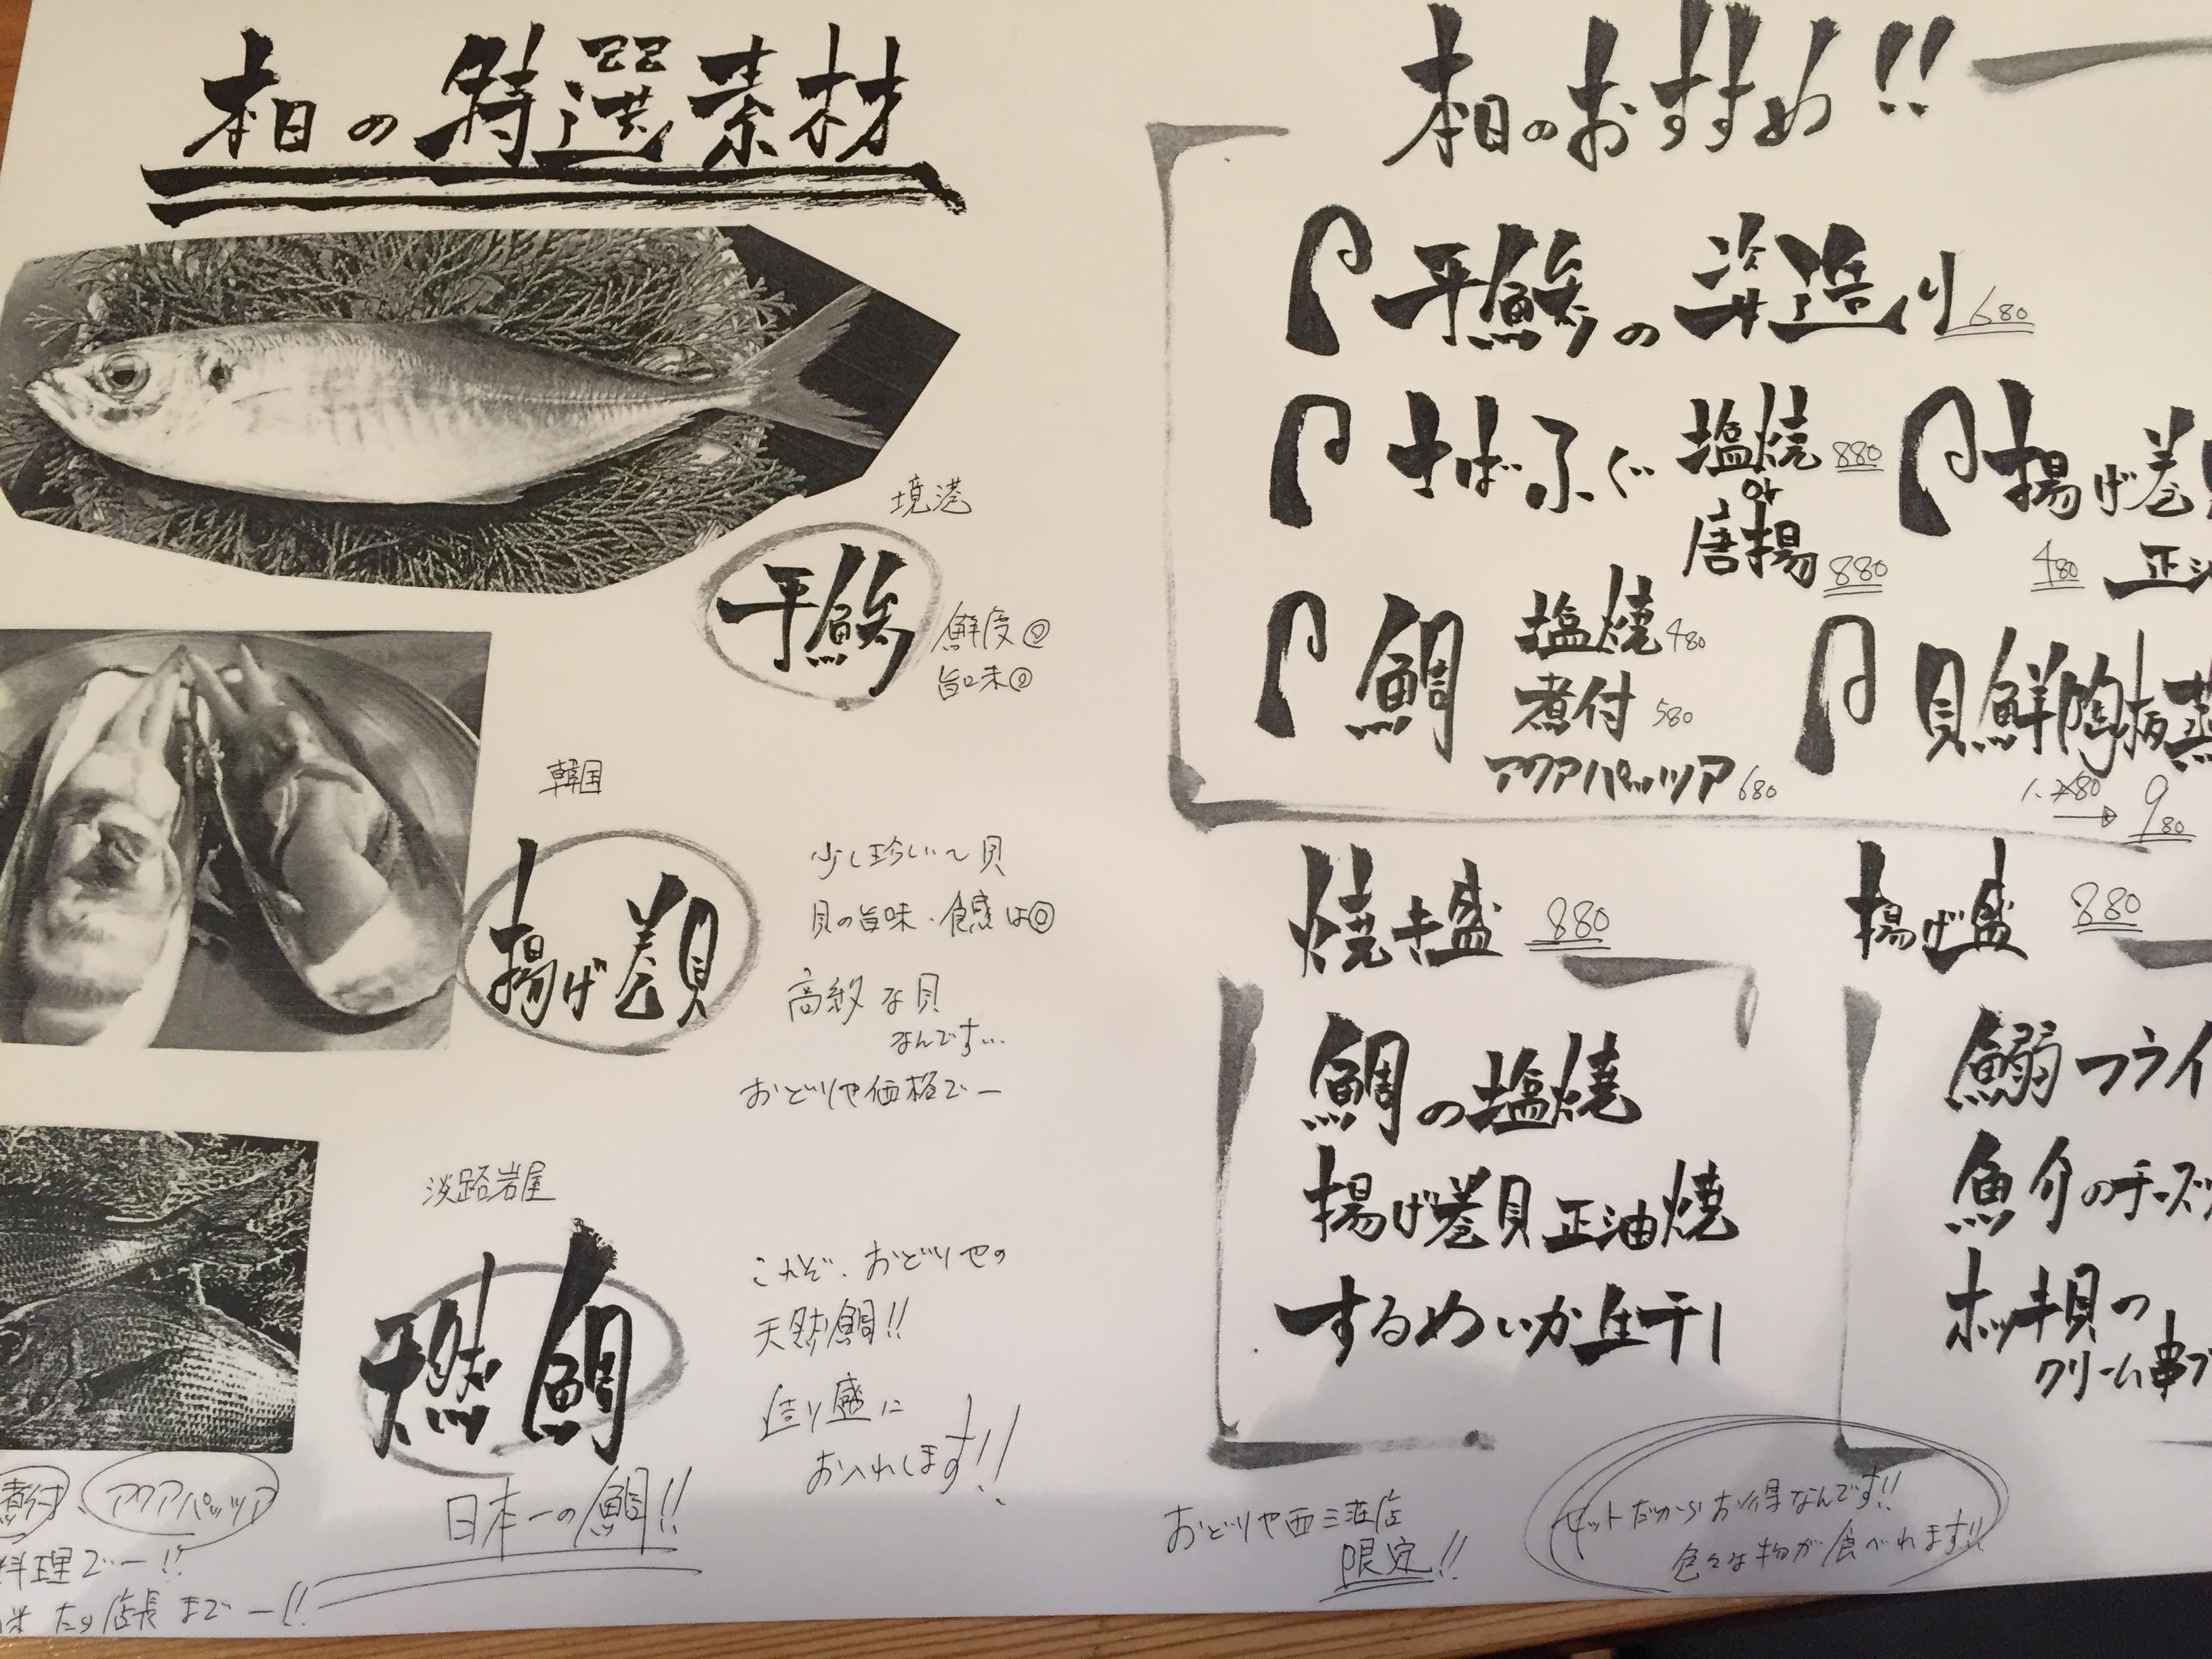 本日の特選素材
境港
平鯵
鮮度◎
旨味◎
韓国
揚げ巻貝
少し珍しい〜貝
貝の旨味・食感は◎
高級な貝
なんです…
おどりや価格でー
淡路岩屋
天然鯛
日本一の鯛!!
これぞ、おどりやの
天然鯛!!
造り盛に
お入れします!!
煮付、アクアパッツア
料理でー!!
店長までー!!
本日のおすすめ!!
平鯵の 造り 680
さばふぐ 塩焼 880
or
唐揚 880
揚げ巻
480 正油
鯛 塩焼 480
煮付 580
アクアパッツア 680
貝鮮陶板蒸
1,280 → 980
焼き盛 880
鯛の塩焼
揚げ巻貝正油焼
するめいか生干し
揚げ盛 880
鰯フライ
魚介のチーズ
ホッキ貝の
クリーム串フ
おどりや西三荘店
限定!!
セットだからお得なんです!!
色々な物が食べれます!!